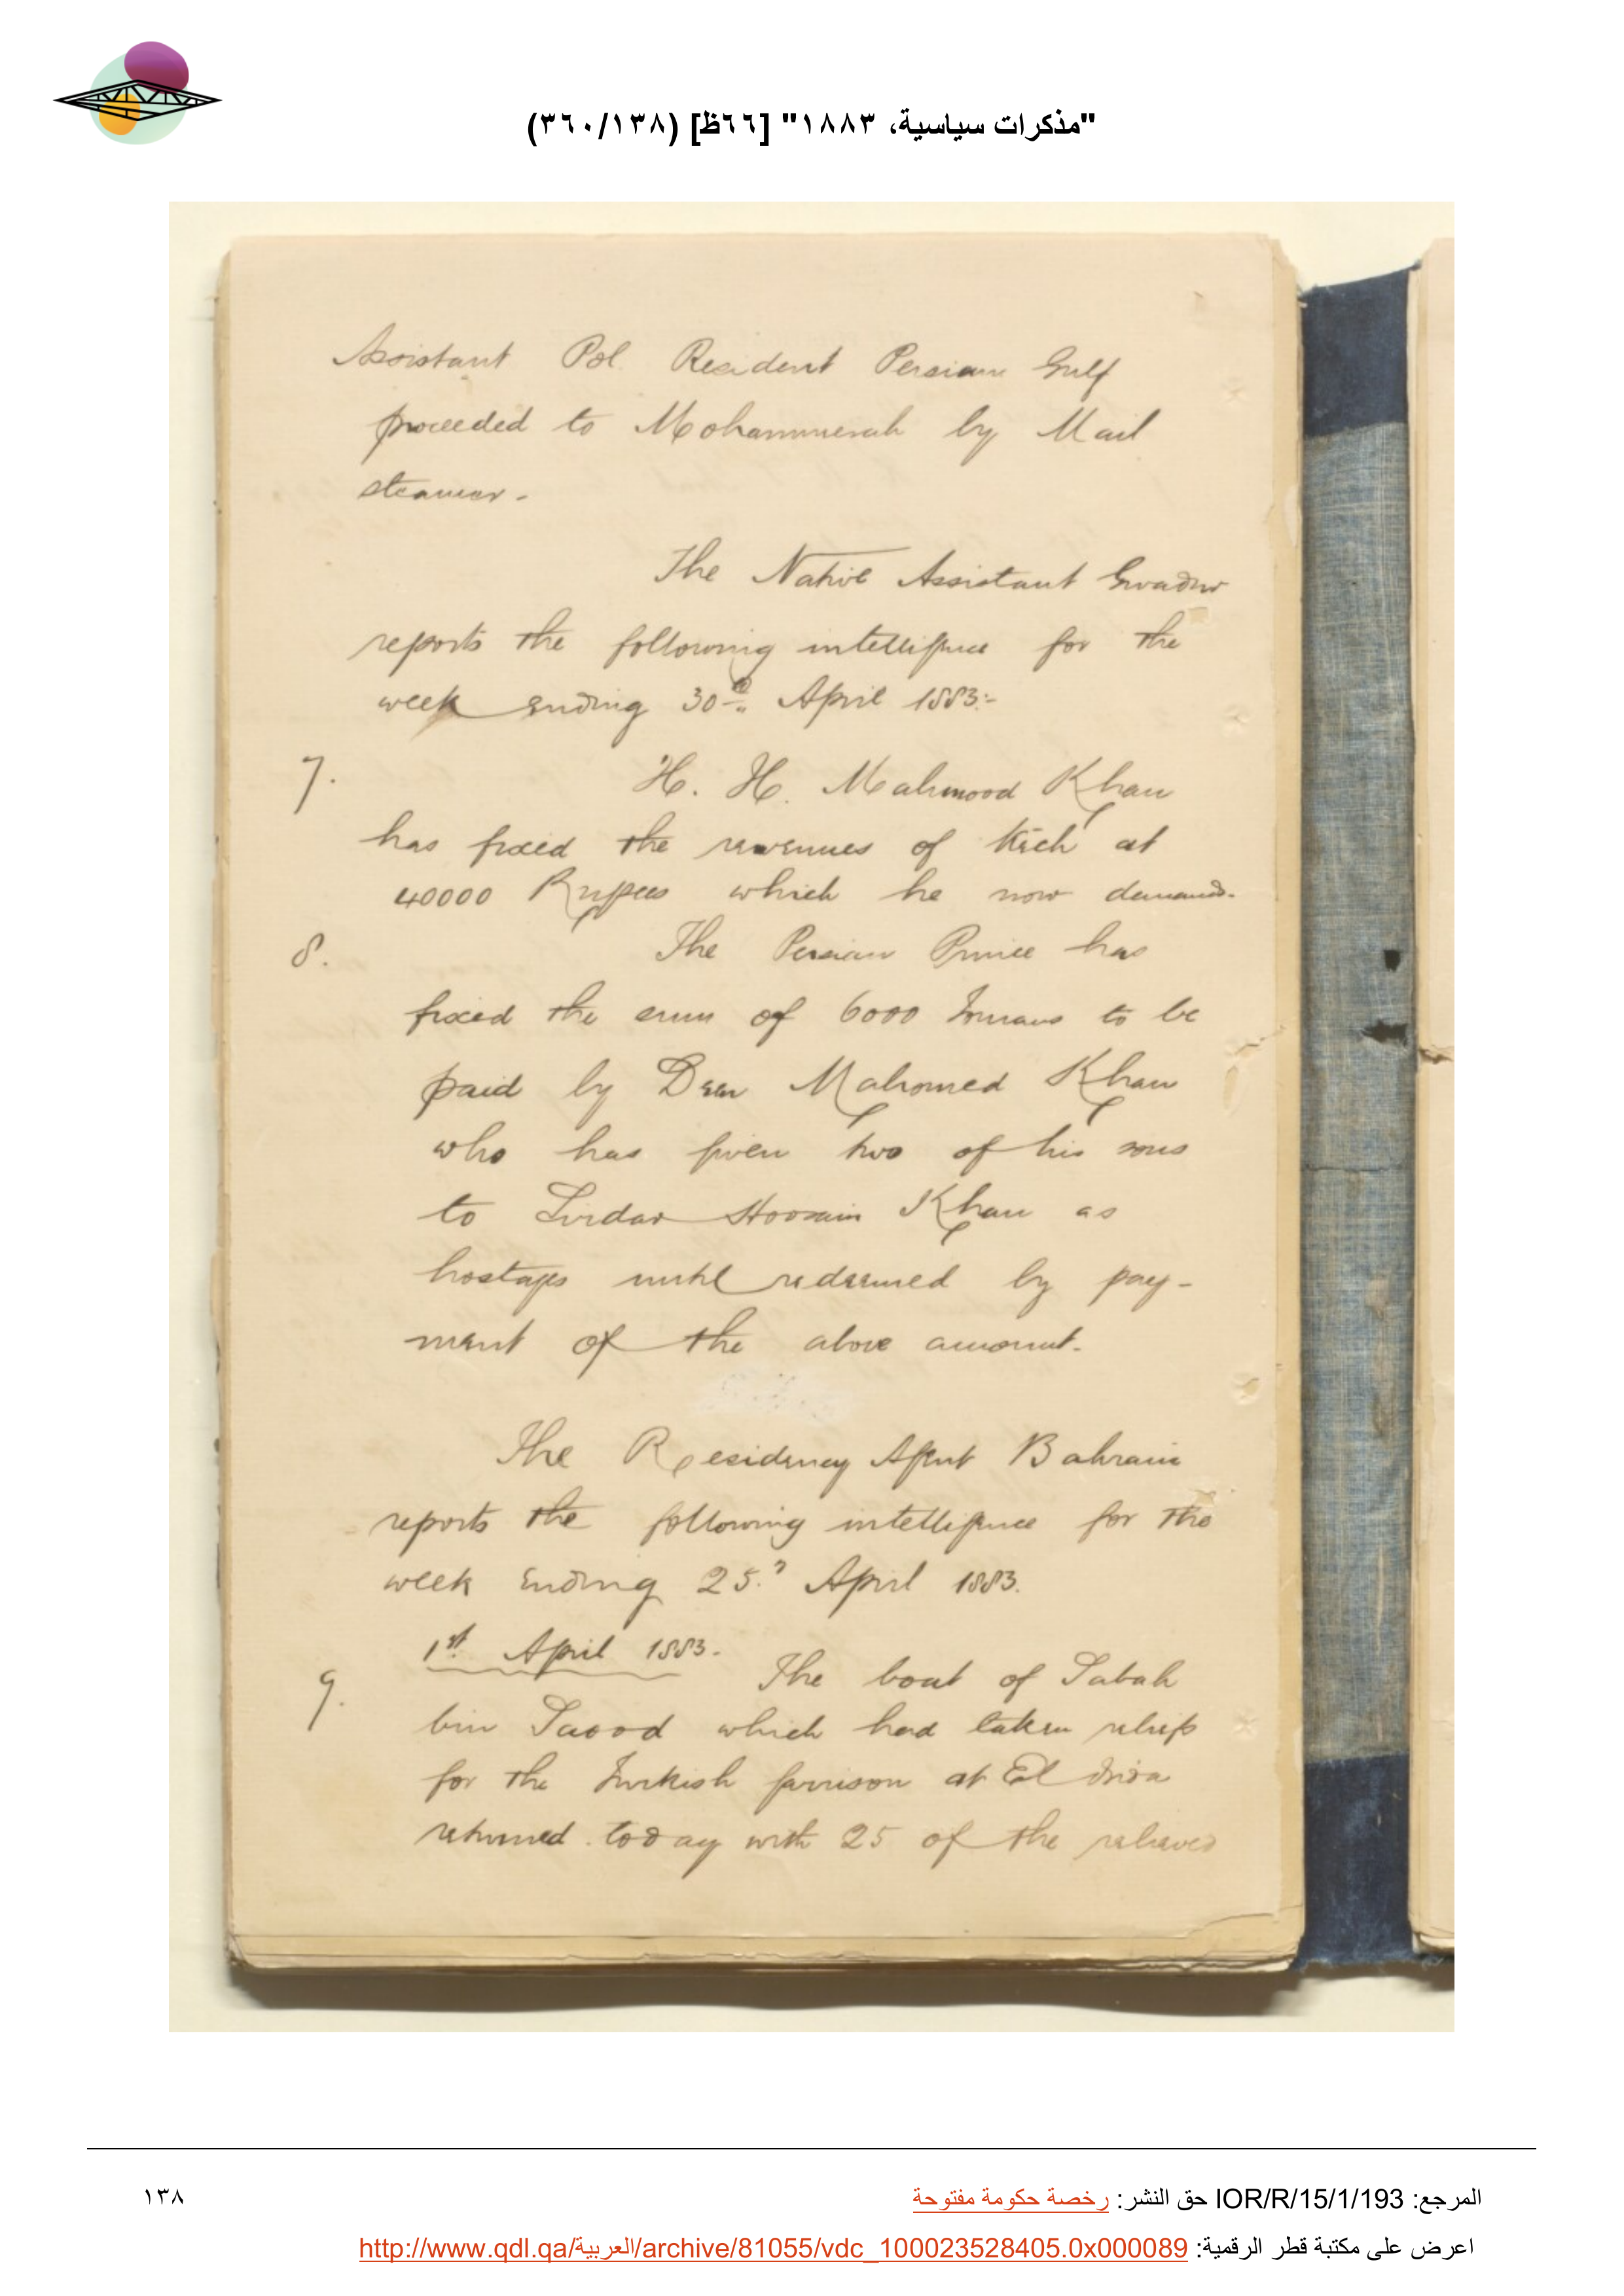 "مذكرات سياسية، ١٨٨٣" [٦٦ظ] (٣٦٠/١٣٨)
Assistant Pol. Resident Persian Gulf
proceeded to Mohammerah by Mail
steamer.
The Native Assistant Gwadur
reports the following intelligence for the
week ending 30th April 1883:-
7. H. H. Mahmood Khan
has fixed the revenues of Kech at
40000 Rupees which he now demands.
8. The Persian Prince has
fixed the sum of 6000 Tomans to be
paid by Deen Mahomed Khan
who has given two of his sons
to Sirdar Hossain Khan as
hostages until redeemed by pay-
ment of the above amount.
The Residency Agent Bahrain
reports the following intelligence for the
week ending 25. April 1883.
1st April 1883.
9. The boat of Sabah
bin Saood which had taken reliefs
for the Turkish garrison at El
returned today with 25 of the relieved
١٣٨
المرجع: IOR/R/15/1/193 حق النشر: رخصة حكومة مفتوحة
اعرض على مكتبة قطر الرقمية: http://www.qdl.qa/العربية/archive/81055/vdc_100023528405.0x000089